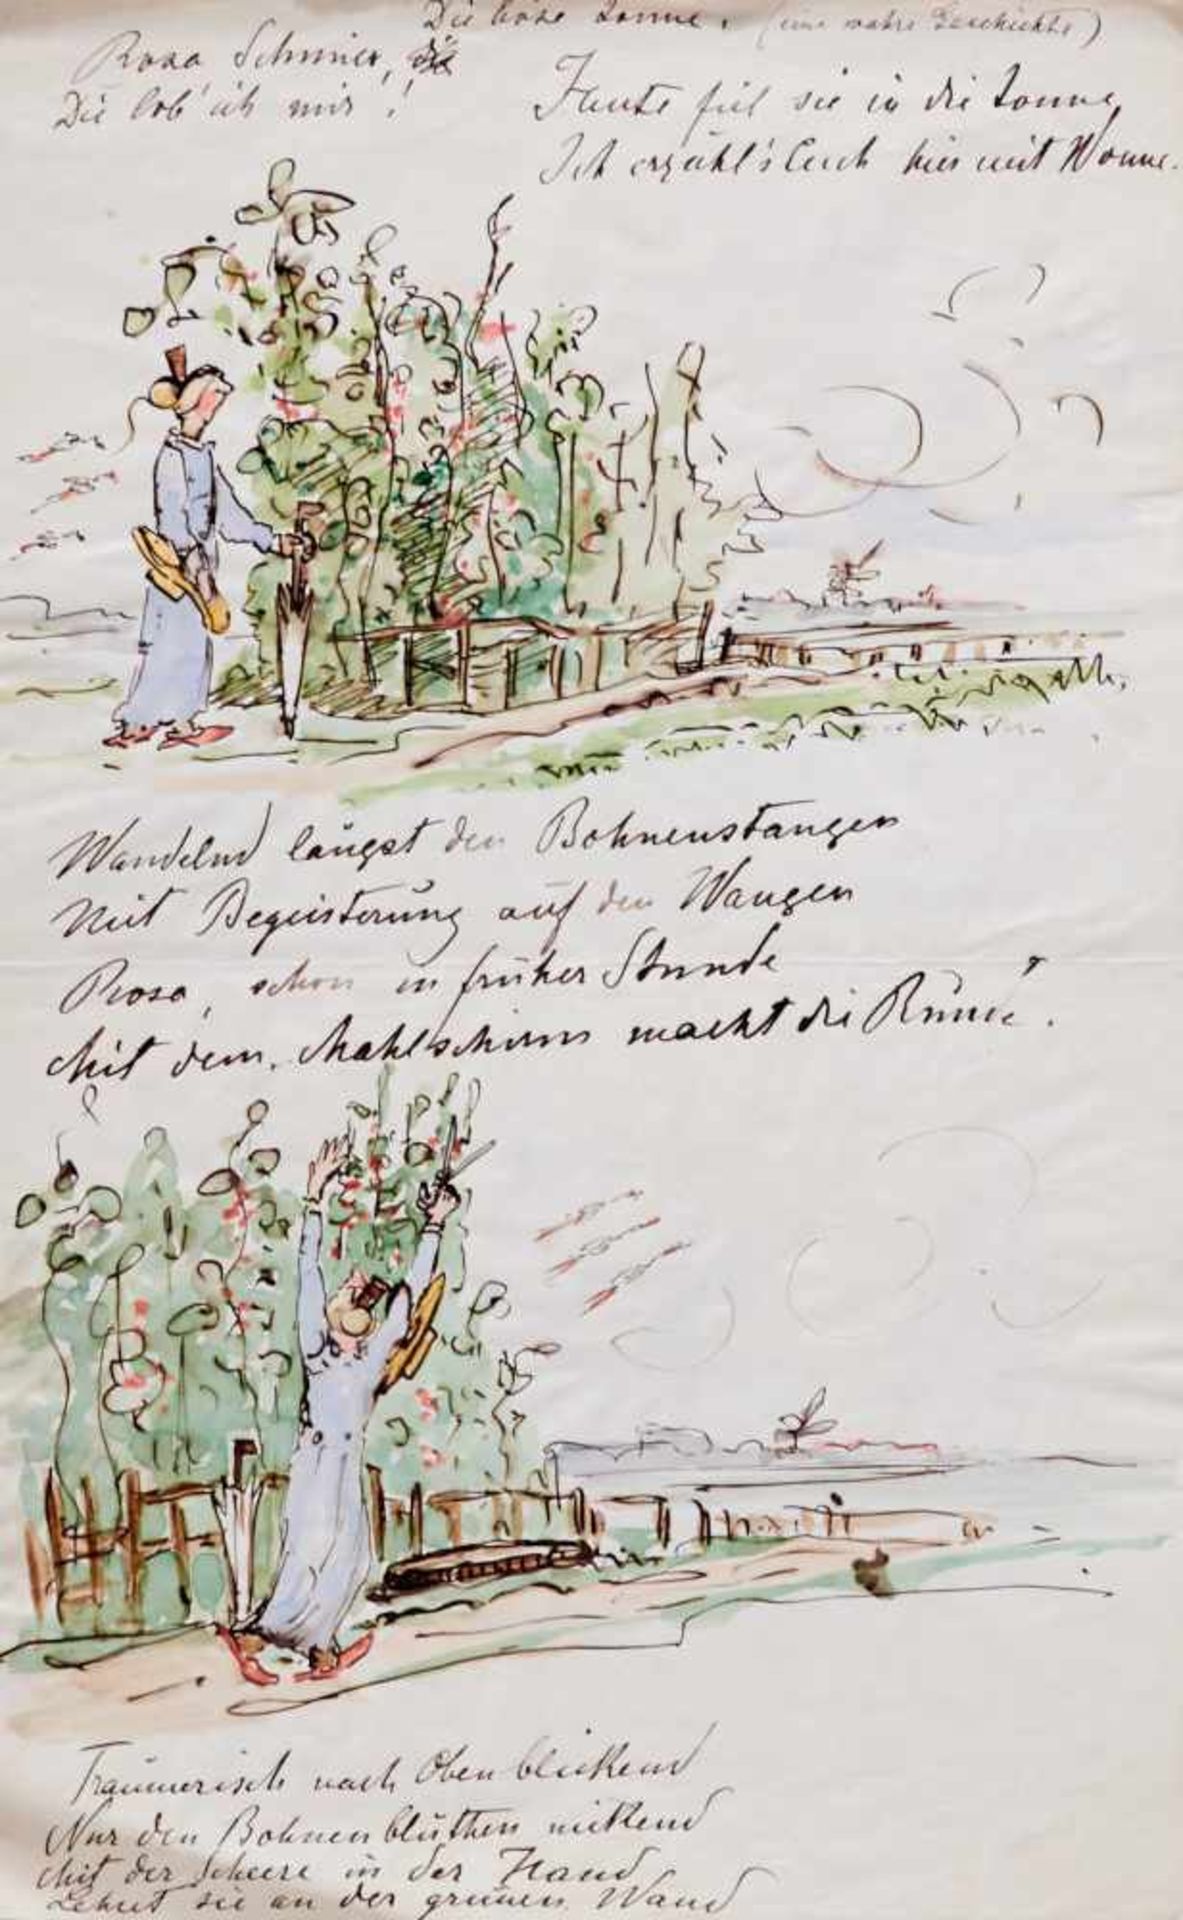 Die böse Tonne. (eine wahre Geschichte)
Rosa Schmier, die
Die lob' ich mir!
Heute fiel sie in die Tonne,
Ich erzähl's Euch hier mit Wonne.
Wandelnd längst den Bohnenstangen
Mit Begeisterung auf den Wangen
Rosa, schon in früher Stunde
Mit dem Mahlschirm macht die Runde.
Träumerisch nach Oben blickend
Nur den Bohnenblüthen nickend
Mit der Scheere in der Hand
Lehnt sie an der grünen Wand